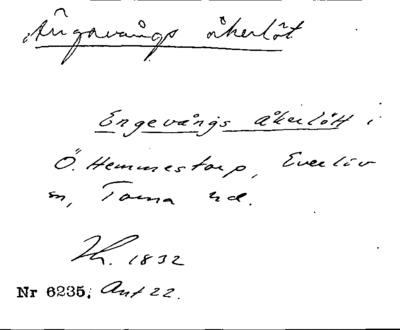 Ängavångs åkerlöt
Engevångs åkerlått i
Ö. Hemmestorp, Everlöv
sn, Torna hd.
Th. 1832
Nr 6235. Ant 22.